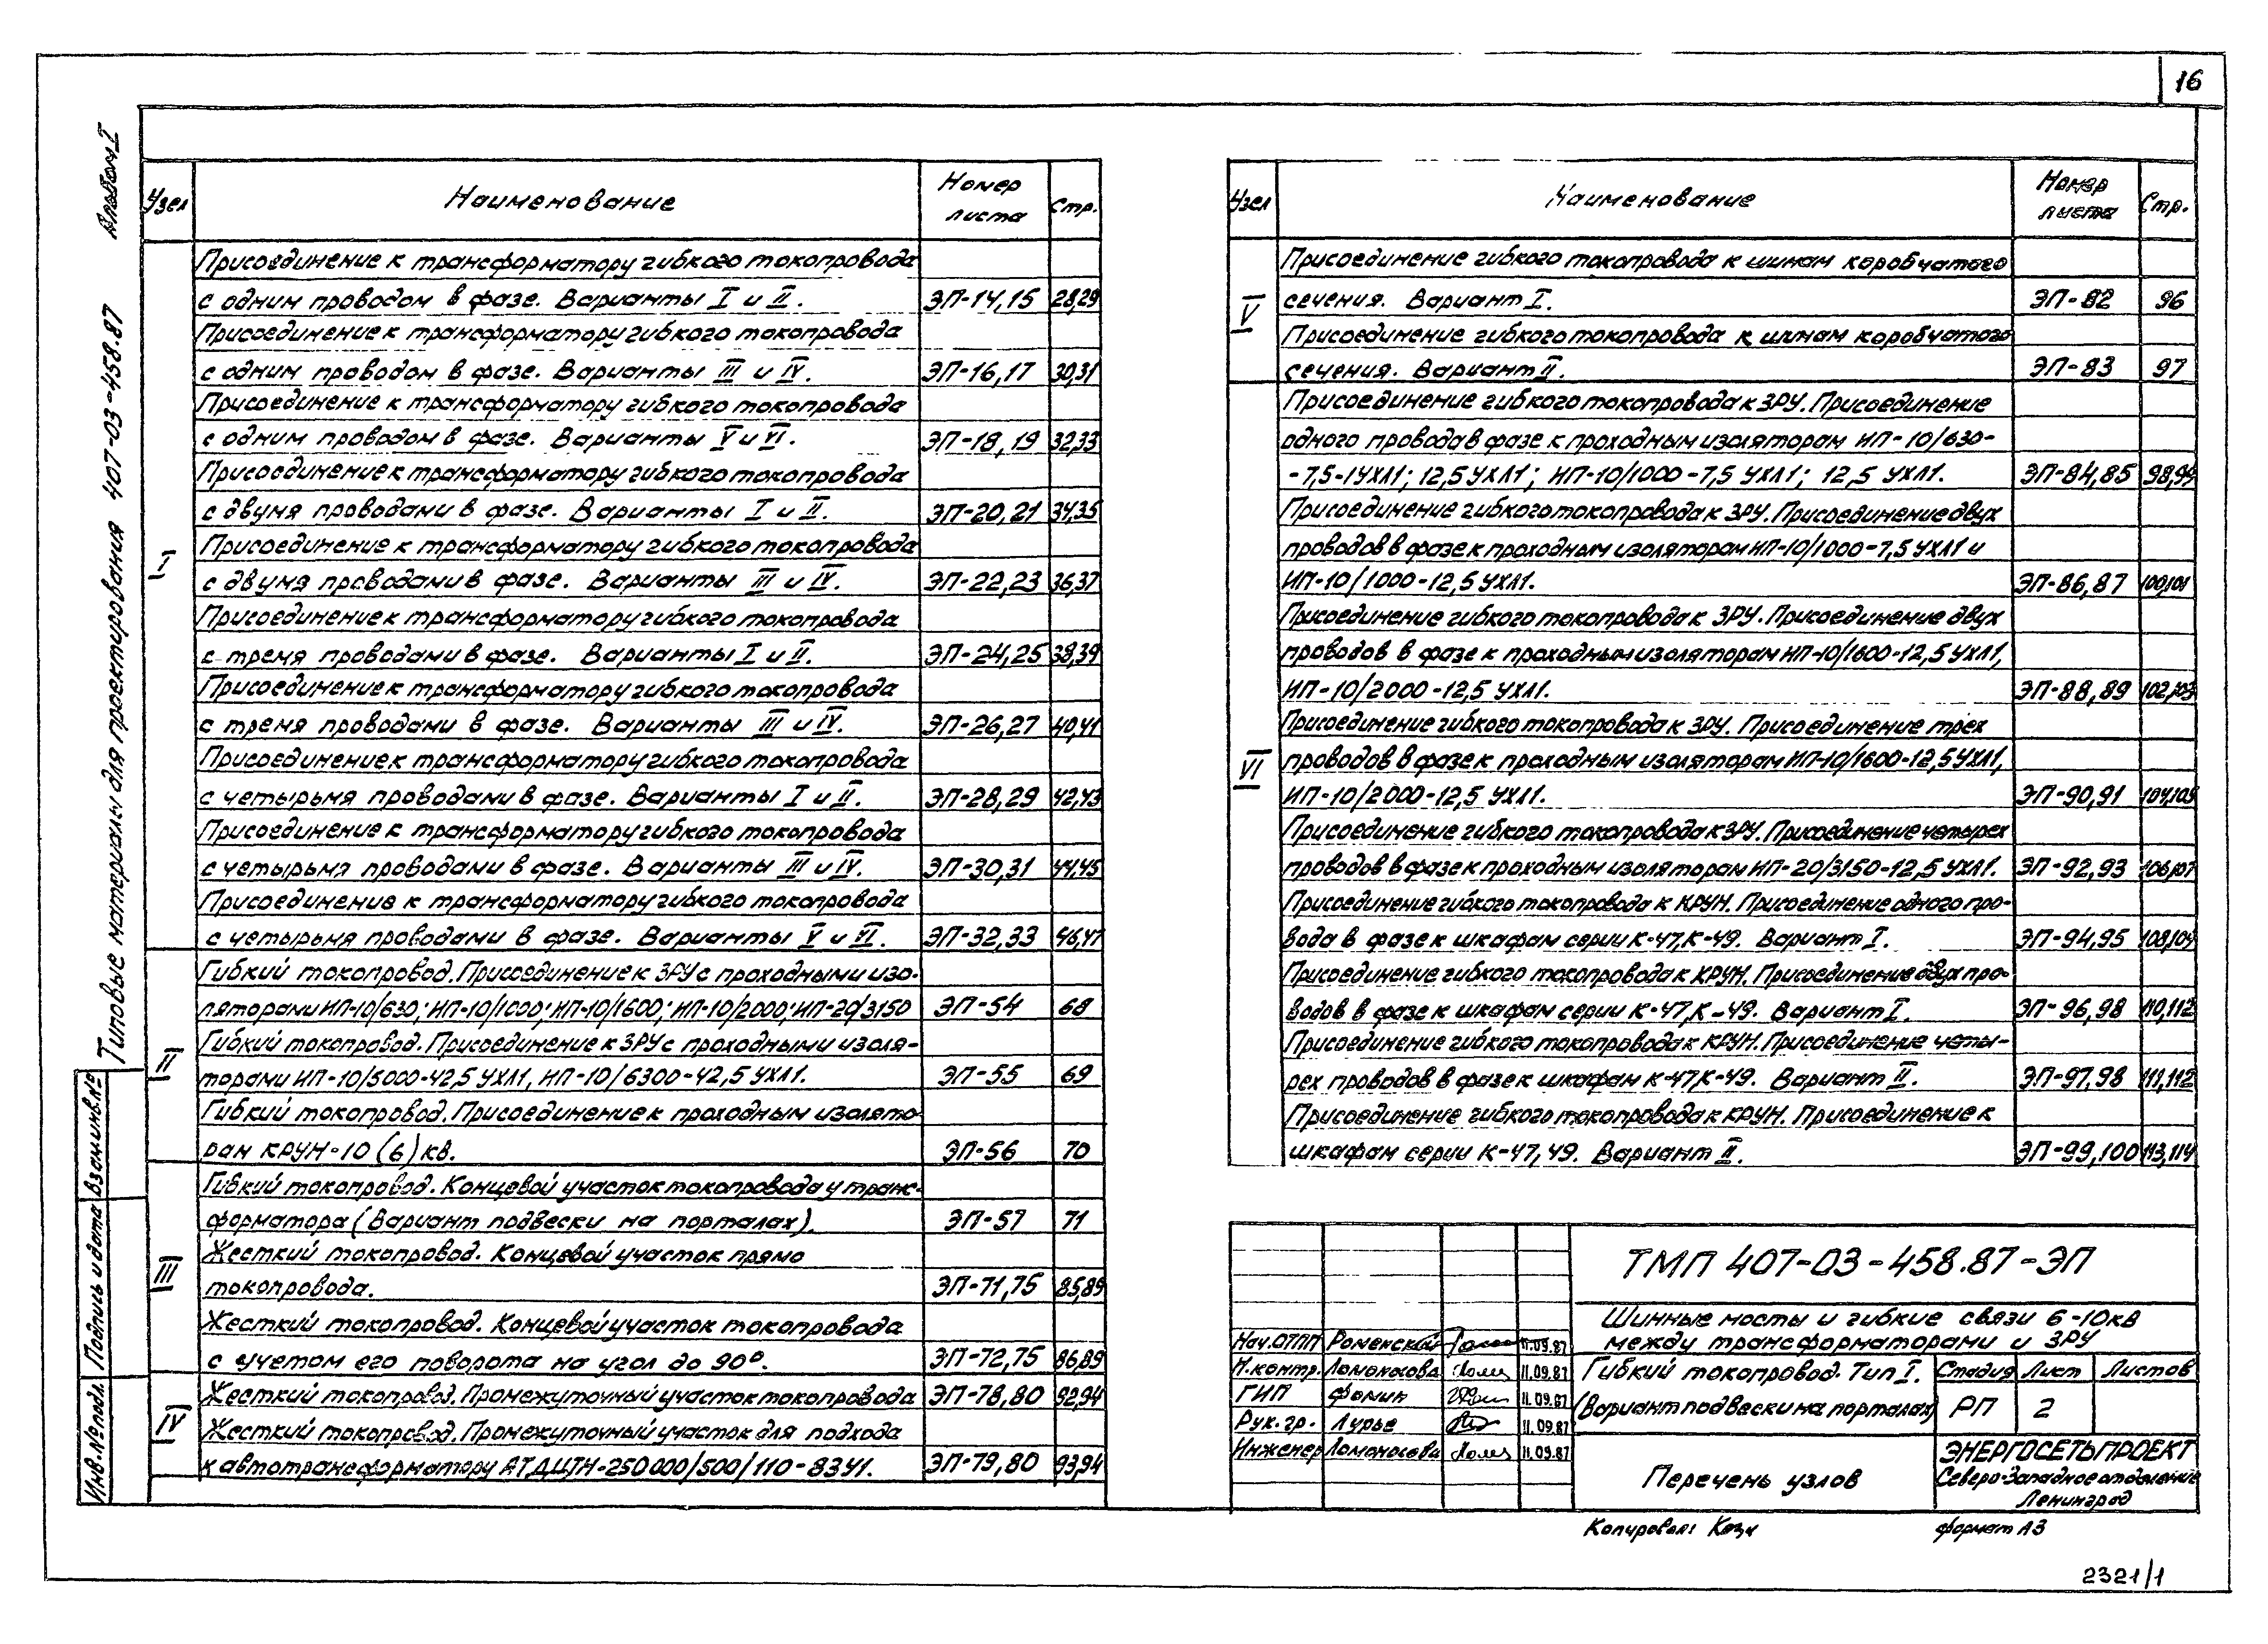 16
Альбом I
Типовые материалы для проектирования 407-03-458.87
Инв.№подл. Подпись и дата Взам.инв.№
Узел Наименование Номер листа Стр.
I
Присоединение к трансформатору гибкого токопровода
с одним проводом в фазе. Варианты I и II. ЭП-14,15 28,29
Присоединение к трансформатору гибкого токопровода
с одним проводом в фазе. Варианты III и IV. ЭП-16,17 30,31
Присоединение к трансформатору гибкого токопровода
с одним проводом в фазе. Варианты V и VI. ЭП-18,19 32,33
Присоединение к трансформатору гибкого токопровода
с двумя проводами в фазе. Варианты I и II. ЭП-20,21 34,35
Присоединение к трансформатору гибкого токопровода
с двумя проводами в фазе. Варианты III и IV. ЭП-22,23 36,37
Присоединение к трансформатору гибкого токопровода
с тремя проводами в фазе. Варианты I и II. ЭП-24,25 38,39
Присоединение к трансформатору гибкого токопровода
с тремя проводами в фазе. Варианты III и IV. ЭП-26,27 40,41
Присоединение к трансформатору гибкого токопровода
с четырьмя проводами в фазе. Варианты I и II. ЭП-28,29 42,43
Присоединение к трансформатору гибкого токопровода
с четырьмя проводами в фазе. Варианты III и IV. ЭП-30,31 44,45
Присоединение к трансформатору гибкого токопровода
с четырьмя проводами в фазе. Варианты V и VI. ЭП-32,33 46,47
II
Гибкий токопровод. Присоединение к ЗРУ с проходными изо-
ляторами ИП-10/630; ИП-10/1000; ИП-10/1600; ИП-10/2000; ИП-20/3150 ЭП-54 68
Гибкий токопровод. Присоединение к ЗРУ с проходными изоля-
торами ИП-10/5000-42,5 УХЛ1, ИП-10/6300-42,5 УХЛ1. ЭП-55 69
Гибкий токопровод. Присоединение к проходным изолято-
рам КРУН-10(6) кв. ЭП-56 70
III
Гибкий токопровод. Концевой участок токопровода у транс-
форматора (Вариант подвески на порталах). ЭП-57 71
Жесткий токопровод. Концевой участок прямо
токопровода. ЭП-71,75 85,89
Жесткий токопровод. Концевой участок токопровода
с учетом его поворота на угол до 90°. ЭП-72,75 86,89
IV
Жесткий токопровод. Промежуточный участок токопровода ЭП-78,80 92,94
Жесткий токопровод. Промежуточный участок для подхода
к автотрансформатору АТДЦТН-250000/500/110-83У1. ЭП-79,80 93,94
Узел Наименование Номер листа Стр.
V
Присоединение гибкого токопровода к шинам коробчатого
сечения. Вариант I. ЭП-82 96
Присоединение гибкого токопровода к шинам коробчатого
сечения. Вариант II. ЭП-83 97
VI
Присоединение гибкого токопровода к ЗРУ. Присоединение
одного провода в фазе к проходным изоляторам ИП-10/630-
-7,5-1УХЛ1; 12,5 УХЛ1; ИП-10/1000-7,5 УХЛ1; 12,5 УХЛ1. ЭП-84,85 98,99
Присоединение гибкого токопровода к ЗРУ. Присоединение двух
проводов в фазе к проходным изоляторам ИП-10/1000-7,5 УХЛ1 и
ИП-10/1000-12,5 УХЛ1. ЭП-86,87 100,101
Присоединение гибкого токопровода к ЗРУ. Присоединение двух
проводов в фазе к проходным изоляторам ИП-10/1600-12,5 УХЛ1,
ИП-10/2000-12,5 УХЛ1. ЭП-88,89 102,103
Присоединение гибкого токопровода к ЗРУ. Присоединение трех
проводов в фазе к проходным изоляторам ИП-10/1600-12,5 УХЛ1,
ИП-10/2000-12,5 УХЛ1. ЭП-90,91 104,105
Присоединение гибкого токопровода к ЗРУ. Присоединение четырех
проводов в фазе к проходным изоляторам ИП-20/3150-12,5 УХЛ1. ЭП-92,93 106,107
Присоединение гибкого токопровода к КРУН. Присоединение одного про-
вода в фазе к шкафам серии К-47,К-49. Вариант I. ЭП-94,95 108,109
Присоединение гибкого токопровода к КРУН. Присоединение двух про-
водов в фазе к шкафам серии К-47,К-49. Вариант I. ЭП-96,98 110,112
Присоединение гибкого токопровода к КРУН. Присоединение четы-
рех проводов в фазе к шкафам К-47,К-49. Вариант II. ЭП-97,98 111,112
Присоединение гибкого токопровода к КРУН. Присоединение к
шкафам серии К-47,49. Вариант II. ЭП-99,100 113,114
ТМП 407-03-458.87-ЭП
Шинные мосты и гибкие связи 6-10кв
между трансформаторами и ЗРУ
Нач.ОТПП Роменский 11.09.87
Н.контр. Ломоносова 11.09.87
ГИП Фомин 11.09.87
Рук.гр. Лурье 11.09.87
Инженер Ломоносова 11.09.87
Гибкий токопровод. Тип I.
(Вариант подвески на порталах)
Стадия Лист Листов
РП 2
Перечень узлов
ЭНЕРГОСЕТЬПРОЕКТ
Северо-Западное отделение
Ленинград
Копировал: формат А3
2321/1